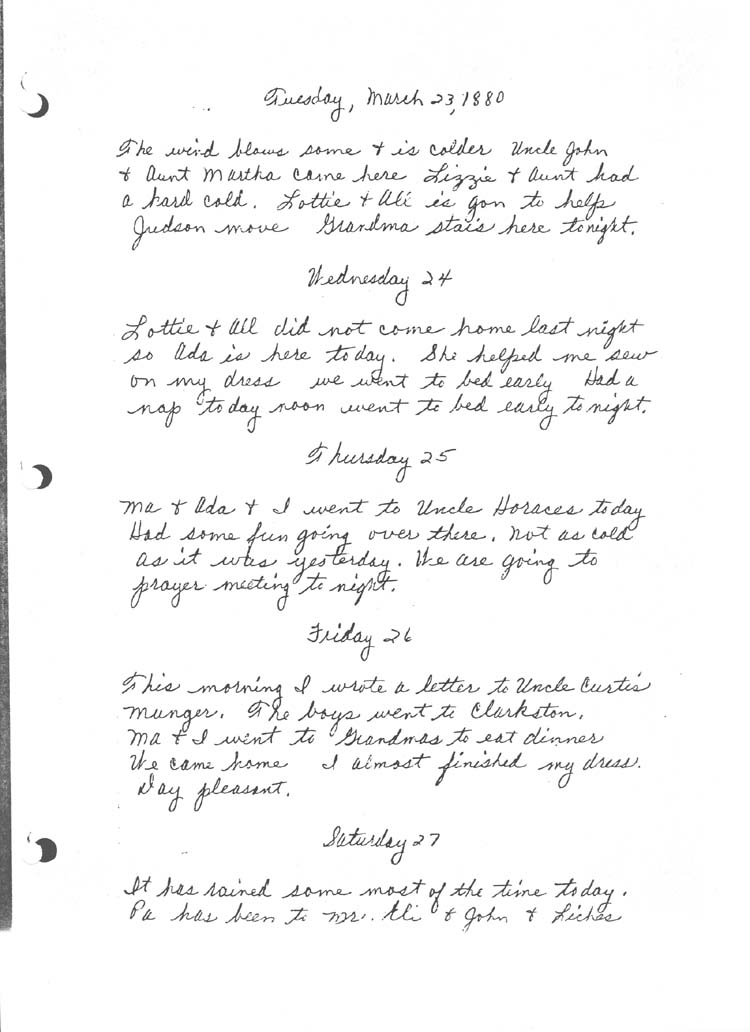 Tuesday, March 23, 1880
The wind blows some + is colder Uncle John
+ Aunt Martha came here Lizzie + Aunt had
a hard cold. Lottie + Ali is gon to help
Judson move Grandma stais here tonight.
Wednesday 24
Lottie + All did not come home last night
so Ada is here today. She helped me sew
on my dress we went to bed early Had a
nap today noon went to bed early to night.
Thursday 25
Ma + Ada + I went to Uncle Horaces today
Had some fun going over there. Not as cold
as it was yesterday. We are going to
prayer meeting to night.
Friday 26
This morning I wrote a letter to Uncle Curtis
Munger. The boys went to Clarkston.
Ma + I went to Grandmas to eat dinner
We came home I almost finished my dress.
Day pleasant.
Saturday 27
It has rained some most of the time today.
Pa has been to Mr. + John +